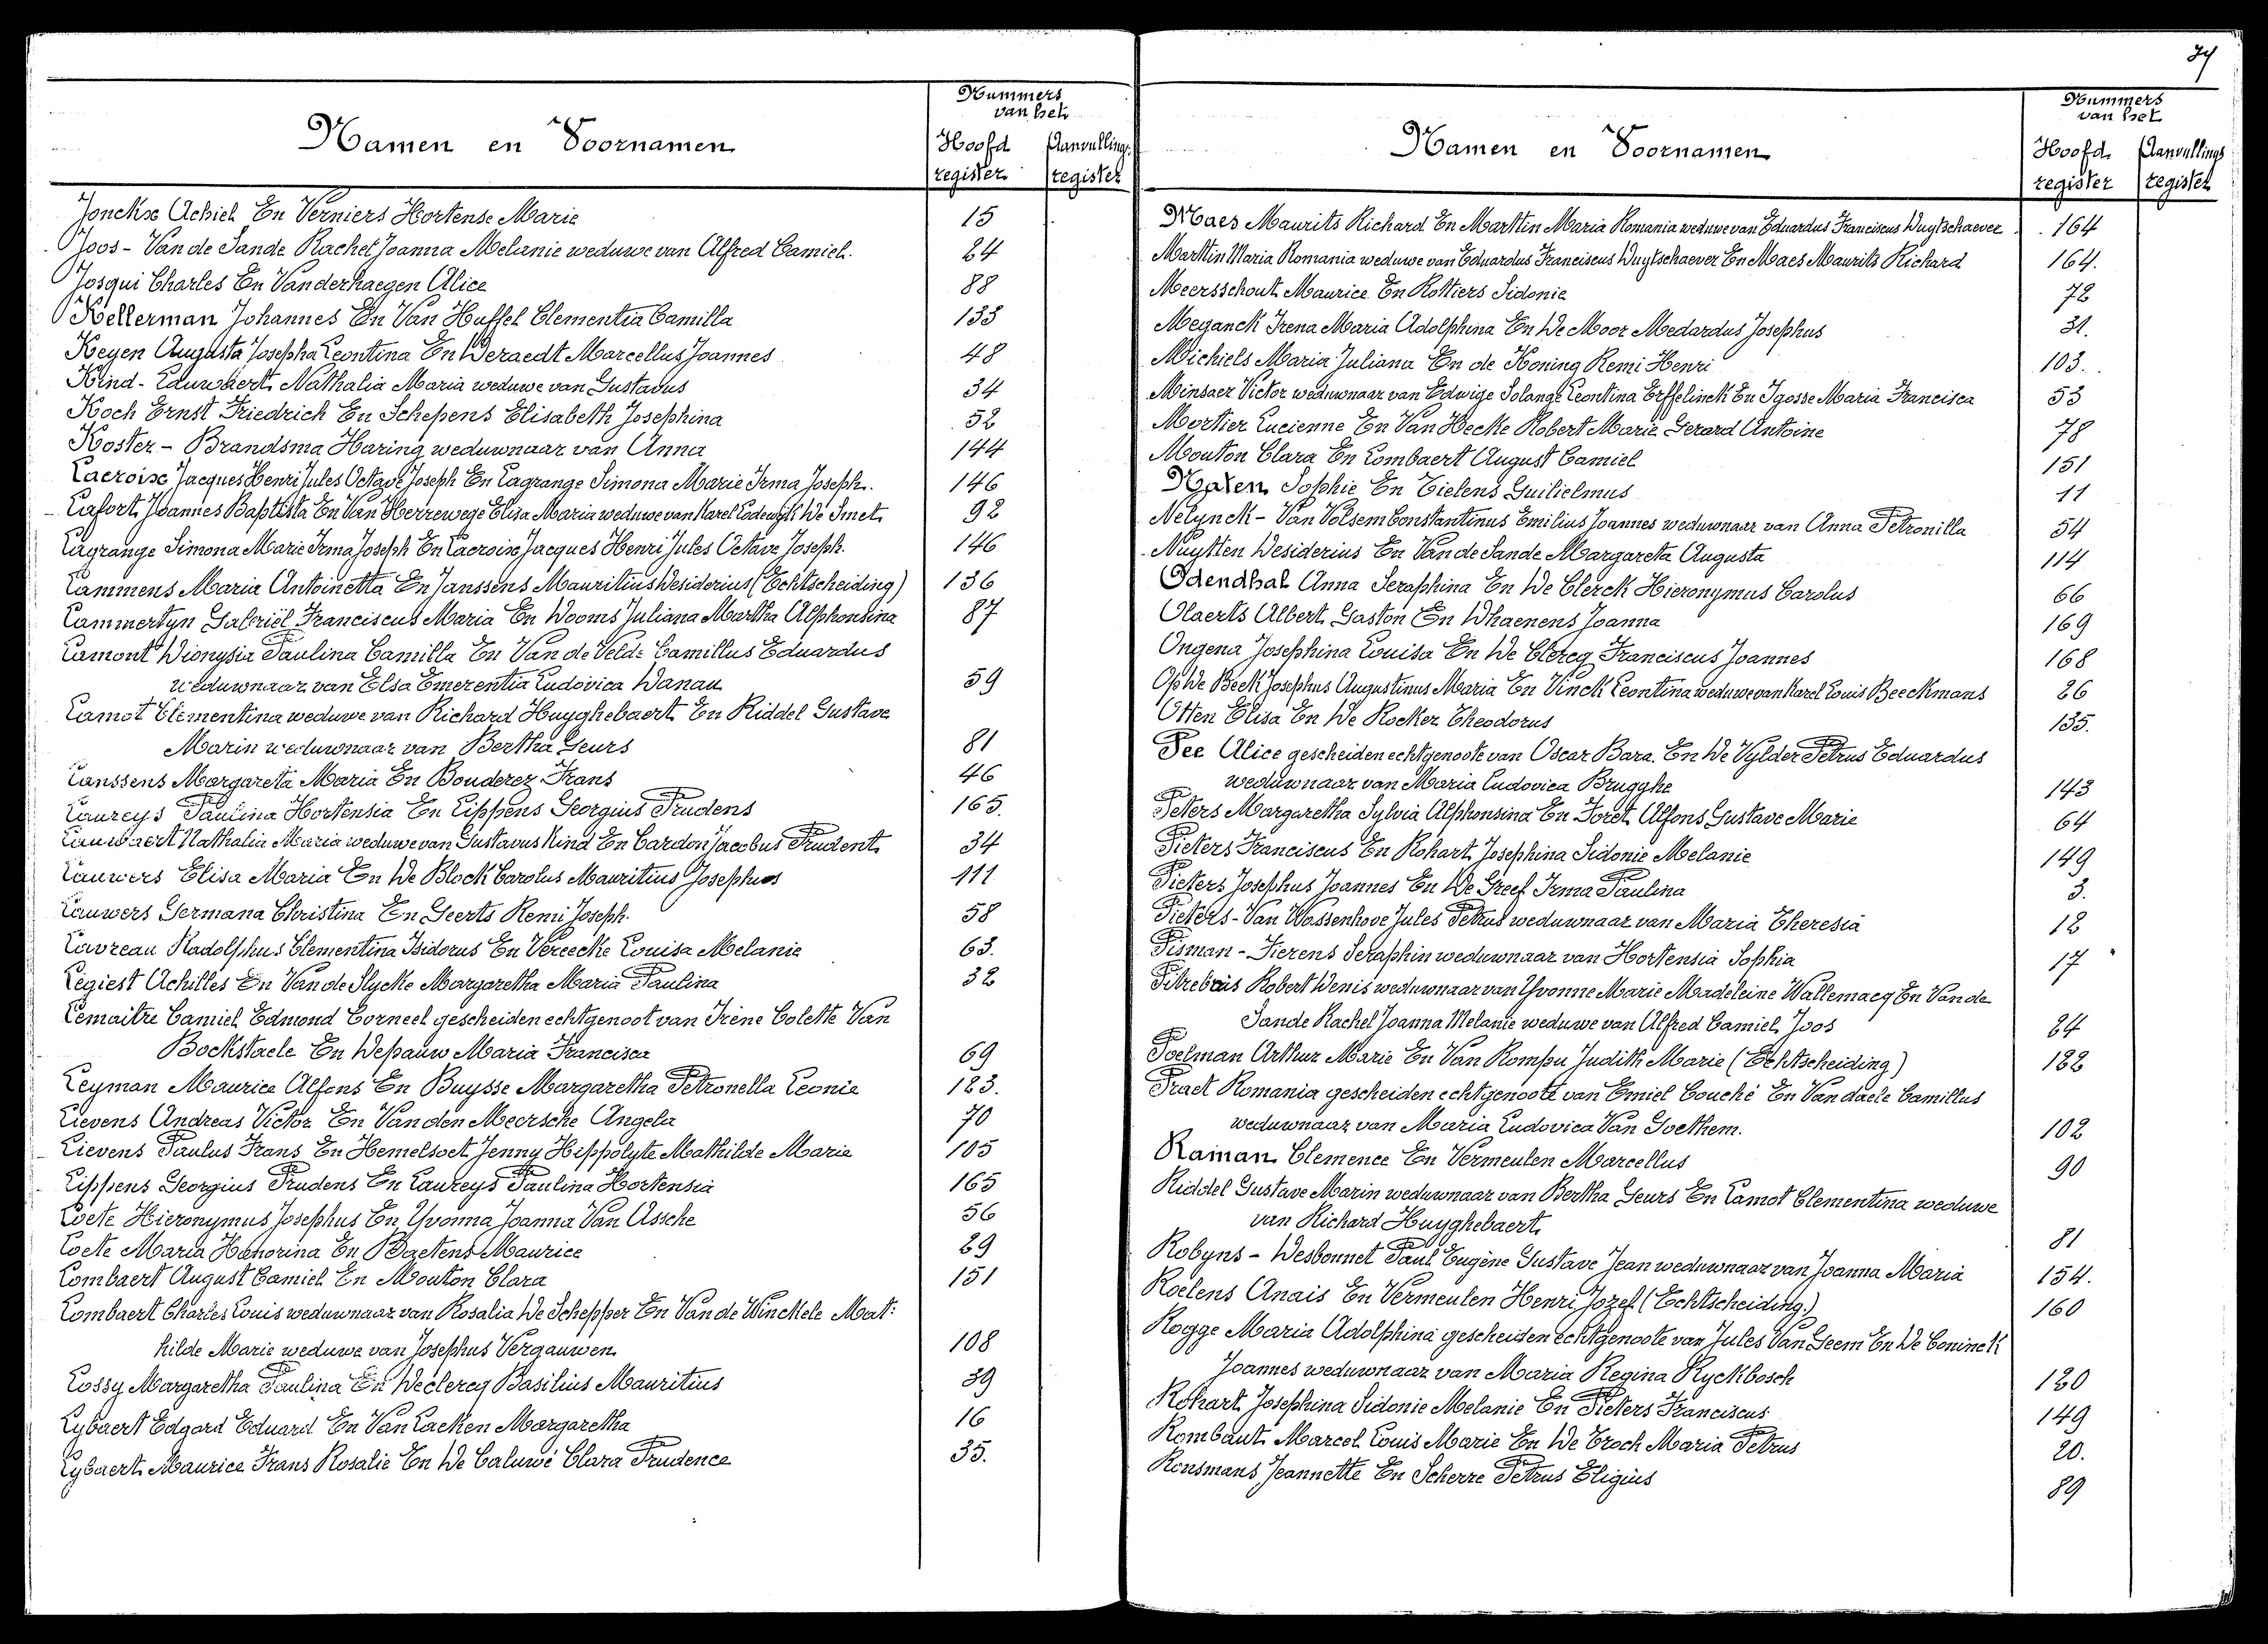 Nummers
van het
Namen en Voornamen
Hoofd Aanvullings
register register
Jonckx Achiel En Verniers Hortense Marie 15
Joos - Van de Sande Rachel Joanna Melanie weduwe van Alfred Camiel. 24
Josqui Charles En Vanderhaegen Alice 88
Kellerman Johannes En Van Huffel Clementia Camilla 133
Keyen Augusta Josepha Leontina En Deraedt Marcellus Joannes 48
Kind - Lauwaert Nathalia Maria weduwe van Gustavus 34
Koch Ernst Friedrich En Schepens Elisabeth Josephina 52
Koster - Brandsma Haring weduwnaar van Anna 144
Lacroix Jacques Henri Jules Octave Joseph En Lagrange Simona Marie Irma Joseph. 146
Lafort Joannes Baptista En Van Herrewege Elisa Maria weduwe van Karel Lodewyk De Smet 92
Lagrange Simona Marie Irma Joseph En Lacroix Jacques Henri Jules Octave Joseph. 146
Lammens Maria Antoinetta En Janssens Mauritius Desiderius (Echtscheiding) 136
Lammertyn Gabriël Franciscus Maria En Dooms Juliana Martha Alphonsina 87
Lamont Dionysia Paulina Camilla En Van de Velde Camillus Eduardus
weduwnaar van Elsa Emerentia Ludovica Danau 59
Lamot Clementina weduwe van Richard Huyghebaert En Riddel Gustave
Marin weduwnaar van Bertha Geurs 81
Lanssens Margareta Maria En Bouderez Frans 46
Laureys Paulina Hortensia En Lippens Georgius Prudens 165.
Lauwaert Nathalia Maria weduwe van Gustavus Kind En Cardon Jacobus Prudent 34
Lauwers Elisa Maria En De Block Carolus Mauritius Josephus 111
Lauwers Germana Christina En Geerts Remi Joseph. 58
Lavreau Radolphus Clementina Isidorus En Vereecke Louisa Melania 63.
Legiest Achilles En Van de Slycke Margaretha Maria Paulina 32
Lemaitre Camiel Edmond Corneel gescheiden echtgenoot van Irène Colette Van
Bockstaele En Depauw Maria Francisca 69
Leyman Maurice Alfons En Buysse Margaretha Petronella Leonie 123.
Lievens Andreas Victor En Van den Meersche Angela 70
Lievens Paulus Frans En Hemelsoet Jenny Hippolyte Mathilde Marie 105
Lippens Georgius Prudens En Laureys Paulina Hortensia 165
Loete Hieronymus Josephus En Yvonna Joanna Van Assche 56
Loete Maria Honorina En Baetens Maurice 29
Lombaert August Camiel En Mouton Clara 151
Lombaert Charles Louis weduwnaar van Rosalia De Schepper En Van de Winckele Mat:
hilde Marie weduwe van Josephus Vergauwen 108
Lossy Margaretha Paulina En Declercq Basilius Mauritius 39
Lybaert Edgard Eduard En Van Lacken Margaretha 16
Lybaert Maurice Frans Rosalie En De Caluwé Clara Prudence 35.
Nummers
van het
Namen en Voornamen
Hoofd Aanvullings
register register
Maes Maurits Richard En Marttin Maria Romania weduwe van Eduardus Franciscus Duytschaever 164
Marttin Maria Romania weduwe van Eduardus Franciscus Duytschaever En Maes Maurits Richard 164.
Meersschout Maurice En Rottiers Sidonie 72
Meganck Irena Maria Adolphina En De Moor Medardus Josephus 31.
Michiels Maria Juliana En de Koning Remi Henri 103.
Minsaer Victor weduwnaar van Edwige Solange Leontina Erffelinck En Igosse Maria Francisca 53
Mortier Lucienne En Van Hecke Robert Marie Gerard Antoine 78
Mouton Clara En Lombaert August Camiel 151
Naten Sophie En Tielens Guilielmus 11
Nelynck - Van Volsem Constantinus Emilius Joannes weduwnaar van Anna Petronilla 54
Nuytten Desiderius En Van de Sande Margareta Augusta 114
Odendhal Anna Seraphina En De Clerck Hieronymus Carolus 66
Olaerts Albert Gaston En Dhaenens Joanna 169
Ongena Josephina Louisa En De Clercq Franciscus Joannes 168
Op De Beek Josephus Augustinus Maria En Vinck Leontina weduwe van Karel Louis Beeckmans 26
Otten Elisa En De Rocker Theodorus 135.
Pee Alice gescheiden echtgenoote van Oscar Bara. En De Vylder Petrus Eduardus
weduwnaar van Maria Ludovica Brugghe 143
Peters Margaretha Sylvia Alphonsina En Foret Alfons Gustave Marie 64
Pieters Franciscus En Rohart Josephina Sidonie Melanie 149
Pieters Josephus Joannes En De Greef Irma Paulina 3.
Pieters - Van Wassenhove Jules Petrus weduwnaar van Maria Theresia 12
Pisman - Fierens Seraphin weduwnaar van Hortensia Sophia 17
Pitrebois Robert Denis weduwnaar van Yvonne Marie Madeleine Wallemacq En Van de
Sande Rachel Joanna Melanie weduwe van Alfred Camiel Joos 24
Poelman Arthur Marie En Van Rompu Judith Marie (Echtscheiding) 122
Praet Romania gescheiden echtgenoote van Emiel Couché En Van daele Camillus
weduwnaar van Maria Ludovica Van Goethem. 102
Raman Clemence En Vermeulen Marcellus 90
Riddel Gustave Marin weduwnaar van Bertha Geurs En Lamot Clementina weduwe
van Richard Huyghebaert 81
Robyns - Desbonnet Paul Eugène Gustave Jean weduwnaar van Joanna Maria 154.
Roelens Anais En Vermeulen Henri Jozef (Echtscheiding.) 160
Rogge Maria Adolphina gescheiden echtgenoote van Jules Van Geem En De Coninck
Joannes weduwnaar van Maria Regina Ryckbosch 120
Rohart Josephina Sidonie Melanie En Pieters Franciscus 149
Rombaut Marcel Louis Marie En De Troch Maria Petrus 20.
Ronsmans Jeannette En Scherre Petrus Eligius 89